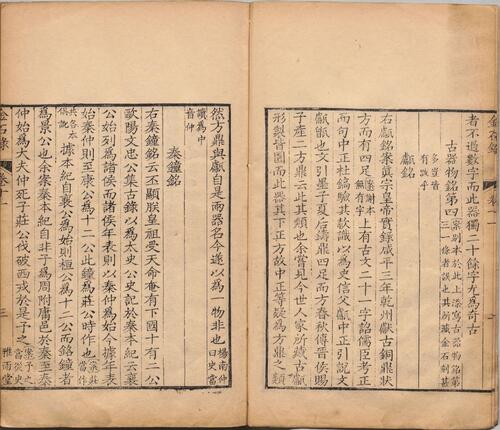 者不過數字而此器獨二十餘字尤爲奇古
古器物銘第四
甗銘
右甗銘案真宗皇帝實錄咸平三年乾州獻古銅鼎狀
方而有四足上有古文二十一字詔儒臣考正
而句中正杜鎬驗其款識以爲史信父甗中正引說文
甗甑也文引墨子夏后鑄鼎四足而方春秋傳晉侯賜
子產二方鼎云此其類也余嘗見今世人家所藏古甗
形製皆圓而此器其下正方故中正等疑爲方鼎之類
然方鼎與甗自是兩器名今遂以爲一物非也 楊南仲曰史當
讀爲中音仲
秦鐘銘
右秦鐘銘云丕顯朕皇祖受天命奄有下國十有二公
歐陽文忠公集古錄以爲太史公史記於秦本紀云襄
公始列爲諸侯而諸侯年表則以秦仲爲始今據年表
始秦仲則至康公爲十二公此鐘爲莊公時作也
據本紀自襄公爲始則桓公爲十二公而銘鐘者
爲景公也余案秦本紀自非子爲周附庸邑於秦至秦
仲始爲大夫仲死子莊公伐破西戎於是予之
金石錄 卷十一
三
雅雨堂